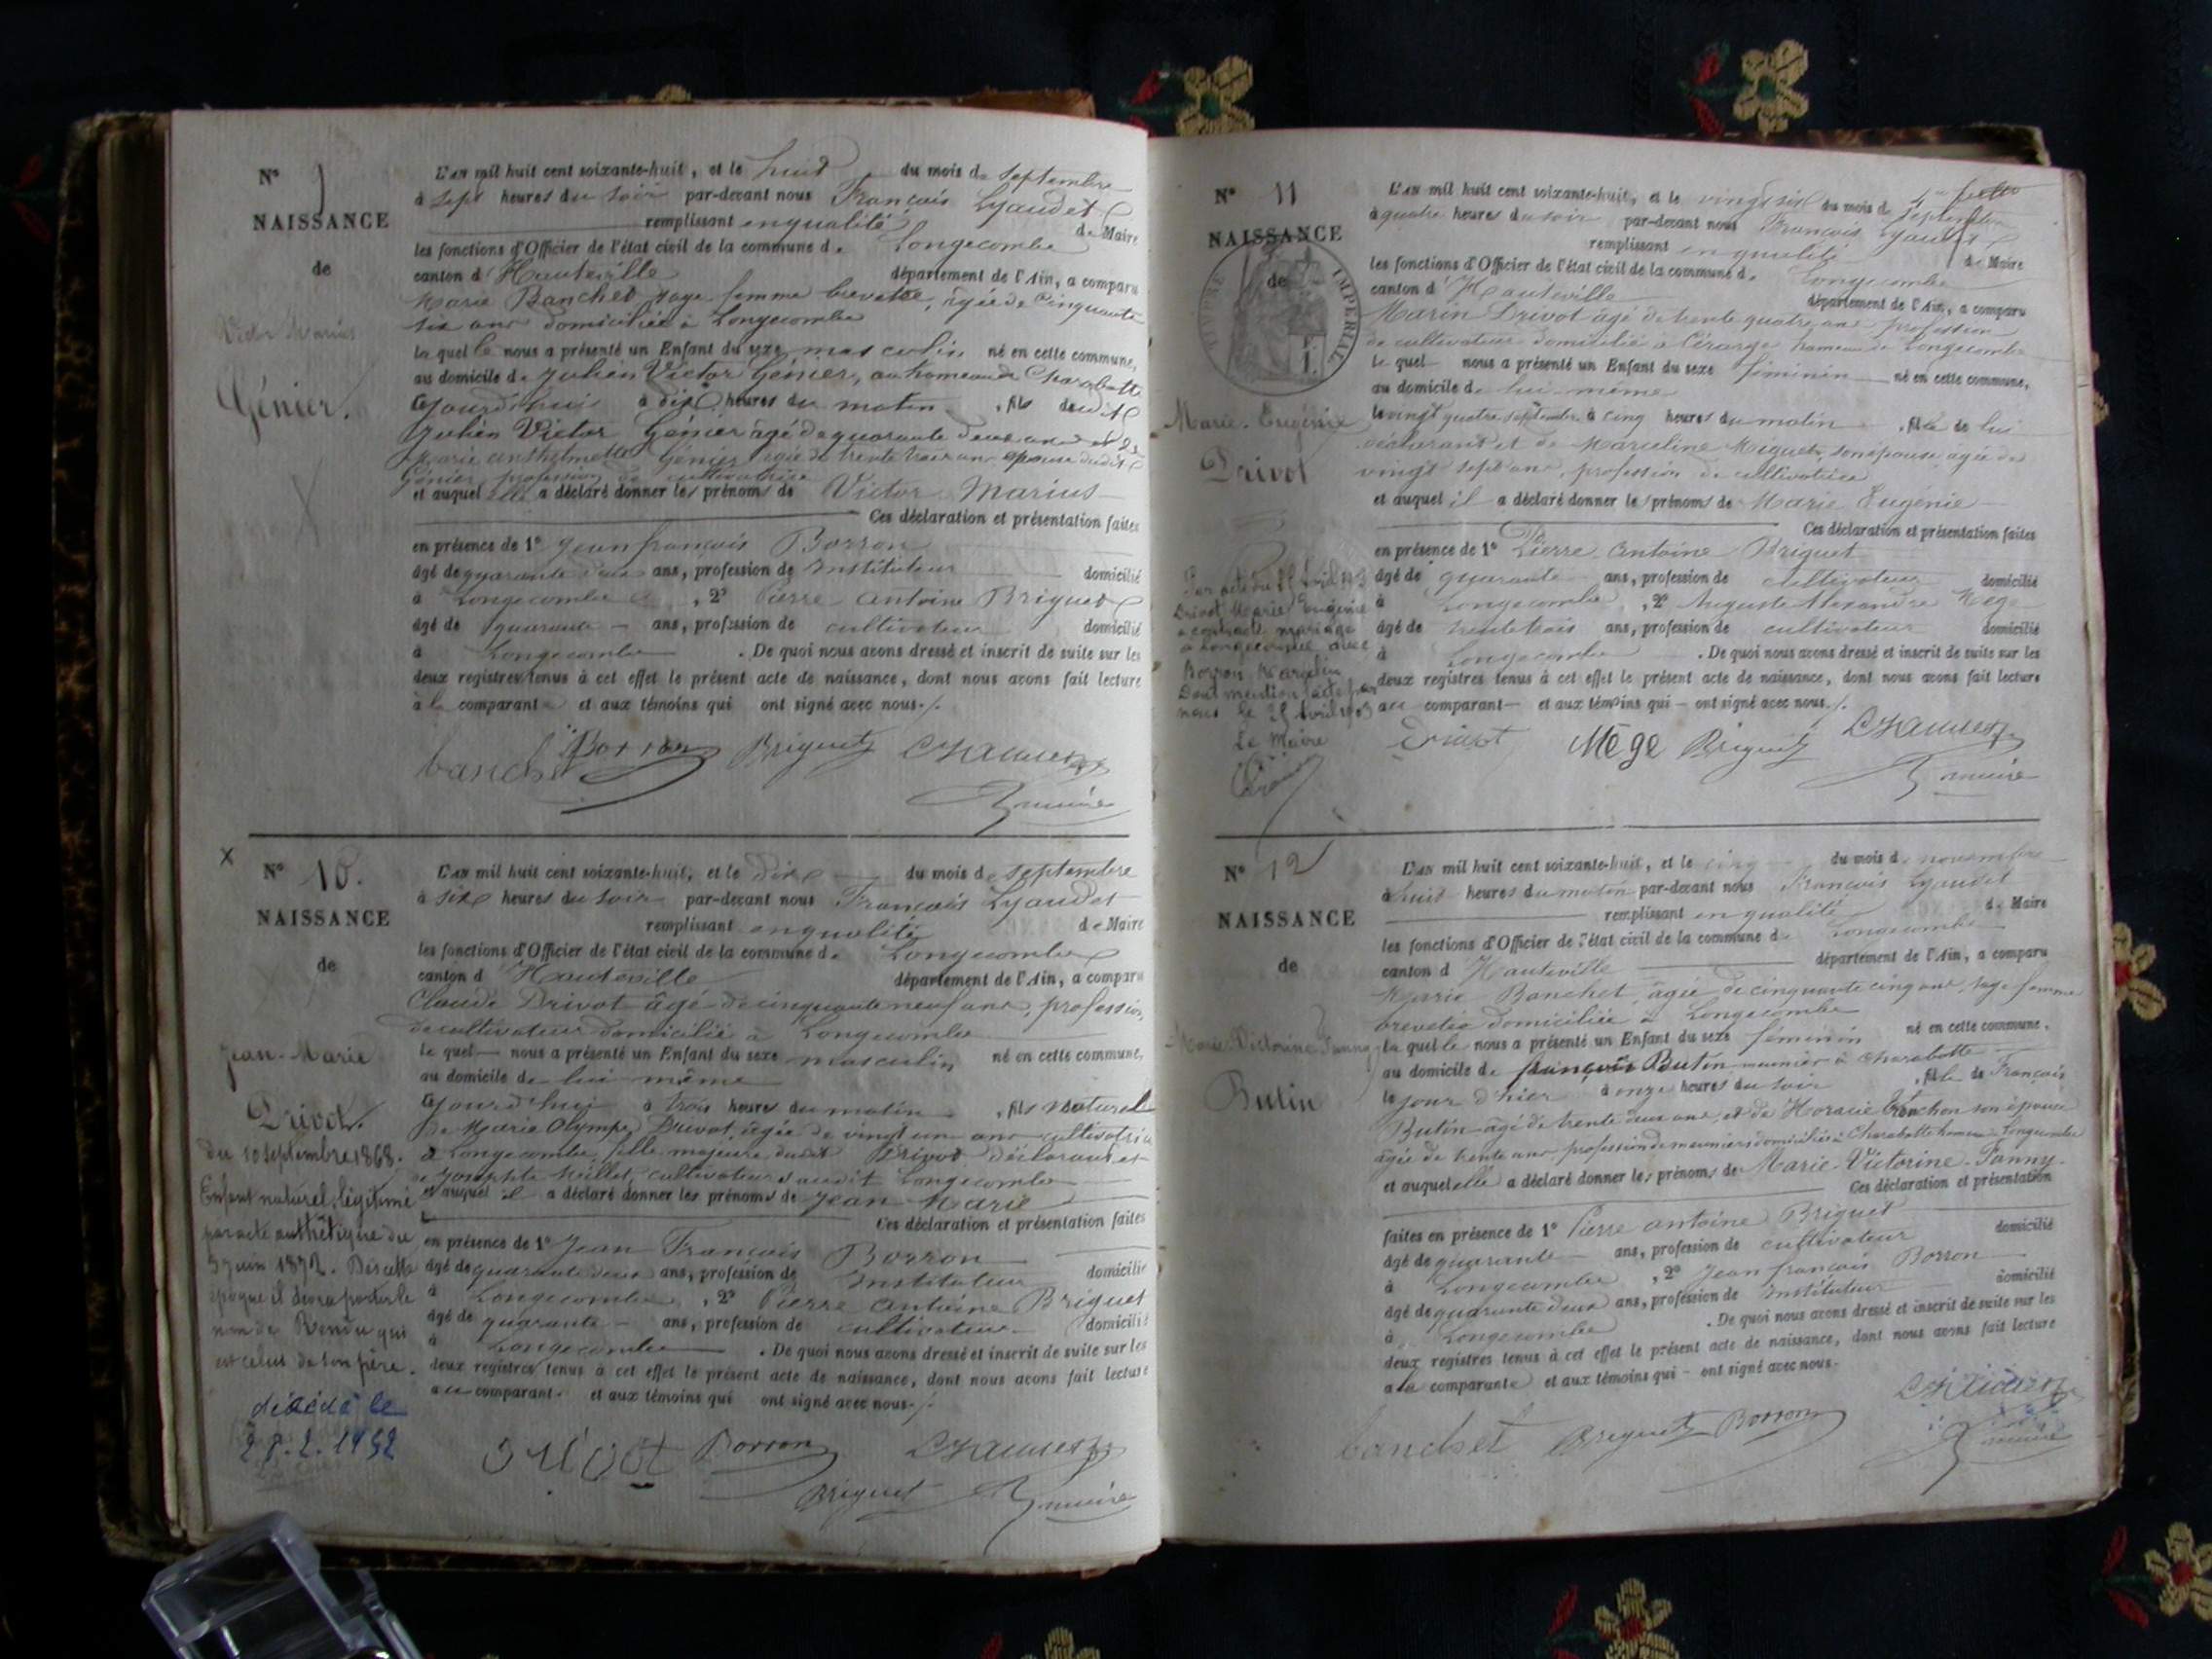 N° 9
NAISSANCE
de
Victor Marius
Génier.
L'an mil huit cent soixante-huit, et le huit du mois de septembre
à sept heures du soir par-devant nous François Lyaudet
remplissant en qualité de Maire
les fonctions d'Officier de l'état civil de la commune de Longecombe
canton d'Hauteville département de l'Ain, a comparu
Marie Banchet sage femme brevetée, âgée de cinquante
six ans domiciliée à Longecombe
laquelle nous a présenté un Enfant du sexe masculin né en cette commune,
au domicile de Julien Victor Génier, au hameau de Charabotte
cejourd'hui à dix heures du matin, fils dudit
Julien Victor Génier âgé de quarante deux ans et de
Marie Anthelmette Génier âgée de trente trois ans épouse dudit
Génier profession de cultivatrice
et auquel elle a déclaré donner les prénoms de Victor Marius
Ces déclaration et présentation faites
en présence de 1° Jean françois Borron
âgé de quarante deux ans, profession de Instituteur domicilié
à Longecombe, 2° Pierre Antoine Briguet
âgé de quarante ans, profession de cultivateur domicilié
à Longecombe. De quoi nous avons dressé et inscrit de suite sur les
deux registres tenus à cet effet le présent acte de naissance, dont nous avons fait lecture
à la comparante et aux témoins qui ont signé avec nous.
banchet Borron Briguet Lyaudet
maire
X
N° 10.
NAISSANCE
de
Jean-Marie
Drivot.
du 10 septembre 1868.
Enfant naturel, légitimé
par acte authentique du
5 juin 1872. Dès cette
époque il devra porter le
nom de Rendu qui
est celui de son père.
décédé le
28.2.1952
L'an mil huit cent soixante-huit, et le dix du mois de septembre
à six heures du soir par-devant nous François Lyaudet
remplissant en qualité de Maire
les fonctions d'Officier de l'état civil de la commune de Longecombe
canton d'Hauteville département de l'Ain, a comparu
Claude Drivot âgé de cinquante neuf ans, profession
de cultivateur domicilié à Longecombe
lequel nous a présenté un Enfant du sexe masculin né en cette commune,
au domicile de lui même
cejourd'hui à trois heures du matin, fils naturel
de Marie Olympe Drivot, âgée de vingt un ans cultivatrice
à Longecombe, fille majeure dudit Drivot déclarant et
Josephte Millet, cultivateurs audit Longecombe
et auquel il a déclaré donner les prénoms de Jean Marie
Ces déclaration et présentation faites
en présence de 1° Jean François Borron
âgé de quarante deux ans, profession de Instituteur domicilié
à Longecombe, 2° Pierre Antoine Briguet
âgé de quarante ans, profession de cultivateur domicilié
à Longecombe. De quoi nous avons dressé et inscrit de suite sur les
deux registres tenus à cet effet le présent acte de naissance, dont nous avons fait lecture
au comparant et aux témoins qui ont signé avec nous.
drivot Borron Lyaudet
Briguet maire
N° 11
NAISSANCE
de
TIMBRE IMPERIAL
Marie-Eugénie
Drivot
Drivot Marie Eugénie
a contracté mariage
à Longecombe avec
Borron Marcelin
Dont mention faite par
nous le 25 avril 1903
Le Maire
L'an mil huit cent soixante-huit, et le vingt six du mois de septembre
à quatre heures du soir par-devant nous François Lyaudet
remplissant en qualité de Maire
les fonctions d'Officier de l'état civil de la commune de Longecombe
canton d'Hauteville département de l'Ain, a comparu
Marin Drivot âgé de trente quatre ans profession
de cultivateur domicilié à hameau de Longecombe
lequel nous a présenté un Enfant du sexe féminin né en cette commune,
au domicile de lui même
le vingt quatre septembre à cinq heures du matin, fille de lui
déclarant et de Marceline Miguet, son épouse, âgée de
vingt sept ans, profession de cultivatrice
et auquel il a déclaré donner les prénoms de Marie Eugénie
Ces déclaration et présentation faites
en présence de 1° Pierre Antoine Briguet
âgé de quarante ans, profession de cultivateur domicilié
à Longecombe, 2° Auguste Alexandre Mège
âgé de trente trois ans, profession de cultivateur domicilié
à Longecombe. De quoi nous avons dressé et inscrit de suite sur les
deux registres tenus à cet effet le présent acte de naissance, dont nous avons fait lecture
au comparant et aux témoins qui ont signé avec nous.
Drivot Mège Briguet Lyaudet
maire
N° 12
NAISSANCE
de
Marie Victorine Fanny
Butin
L'an mil huit cent soixante-huit, et le cinq du mois de novembre
à huit heures du matin par-devant nous François Lyaudet
remplissant en qualité de Maire
les fonctions d'Officier de l'état civil de la commune de Longecombe
canton d'Hauteville département de l'Ain, a comparu
Marie Banchet, âgée de cinquante cinq ans, sage femme
brevetée domiciliée à Longecombe
laquelle nous a présenté un Enfant du sexe féminin né en cette commune,
au domicile de françois Butin meunier à Charabotte
le jour d'hier à onze heures du soir, fille de François
Butin âgé de trente deux ans, et de Horacie son épouse
âgée de trente ans profession de meuniers domiciliés à Charabotte hameau Longecombe
et auquel elle a déclaré donner les prénoms de Marie-Victorine-Fanny.
Ces déclaration et présentation
faites en présence de 1° Pierre antoine Briguet domicilié
âgé de quarante ans, profession de cultivateur
à Longecombe, 2° Jean françois Borron domicilié
âgé de quarante deux ans, profession de Instituteur
à Longecombe. De quoi nous avons dressé et inscrit de suite sur les
deux registres tenus à cet effet le présent acte de naissance, dont nous avons fait lecture
à la comparante et aux témoins qui ont signé avec nous.
banchet Briguet Borron Lyaudet
maire